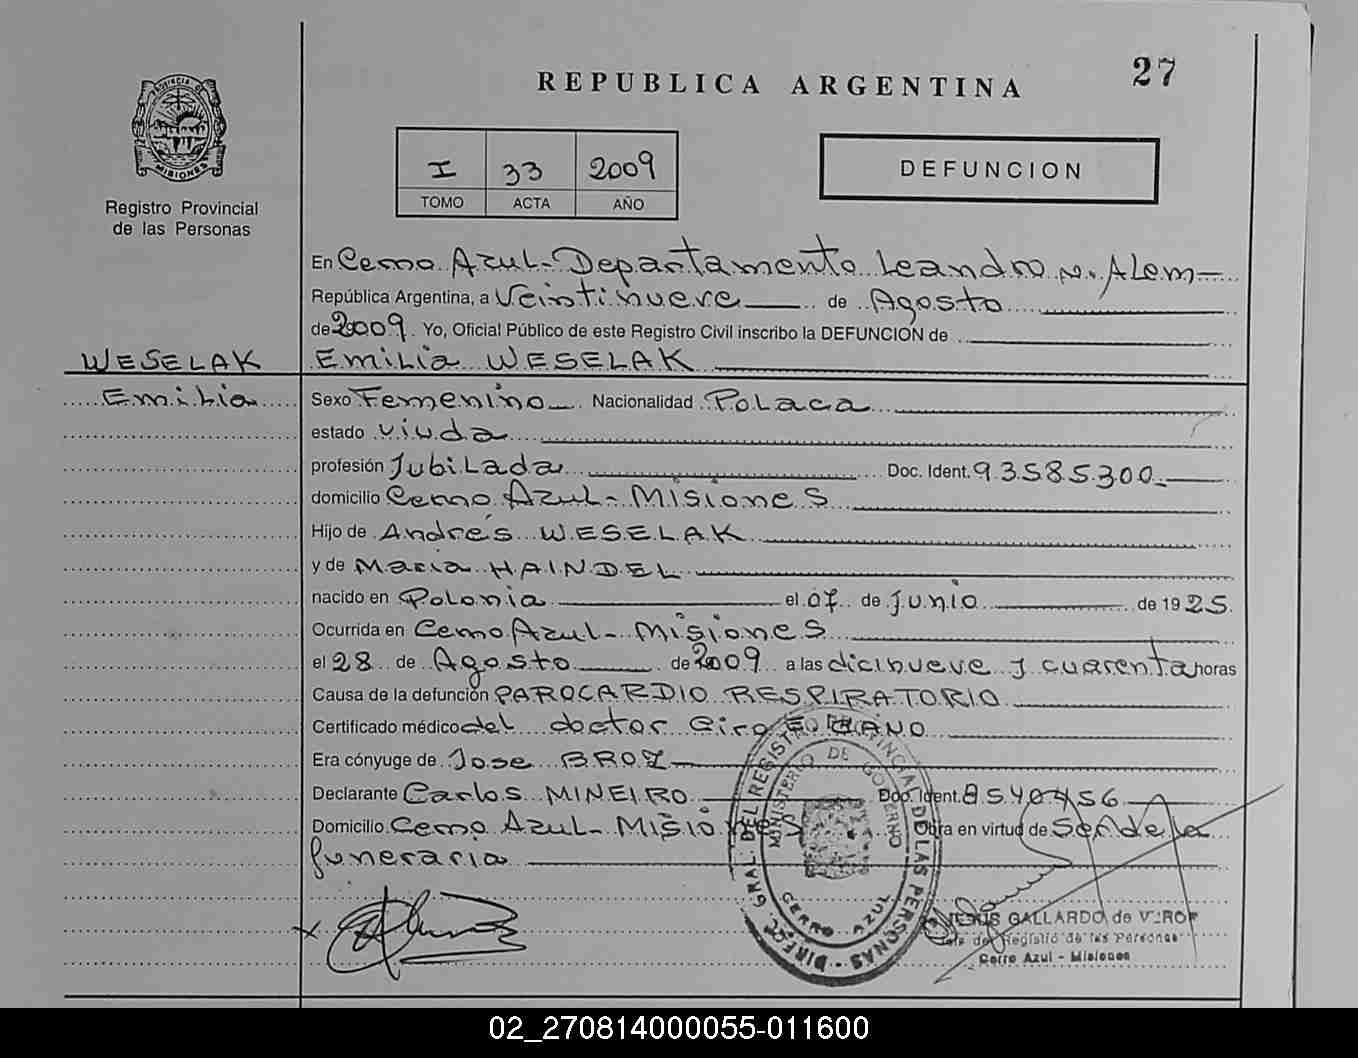 27
REPUBLICA ARGENTINA
PROVINCIA DE
MISIONES
Registro Provincial
de las Personas
I 33 2009
TOMO ACTA AÑO
DEFUNCION
En Cerro Azul - Departamento Leandro N. Alem —
República Argentina, a Veintinueve — de Agosto
de 2009. Yo, Oficial Público de este Registro Civil inscribo la DEFUNCION de
WESELAK Emilia WESELAK
Emilia Sexo Femenino Nacionalidad Polaca
estado viuda
profesión Jubilada Doc. Ident. 93585300
domicilio Cerro Azul - Misiones
Hijo de Andrés WESELAK
y de Maria HAINDEL
nacido en Polonia el 07 de Junio de 1925.
Ocurrida en Cerro Azul - Misiones
el 28 de Agosto de 2009 a las dicinueve y cuarenta horas
Causa de la defunción PAROCARDIO RESPIRATORIO
Certificado médico del doctor Ciro E.
Era cónyuge de Jose BROZ
Declarante Carlos MINEIRO Doc. Ident. 8540456
Domicilio Cerro Azul - Misiones Obra en virtud de Ser de la
funeraria
DIRECC. GRAL. DEL REGISTRO PROVINCIAL DE LAS PERSONAS
MINISTERIO DE GOBIERNO
CERRO AZUL
JESUS GALLARDO de
del Registro de las Personas
Cerro Azul - Misiones
02_270814000055-011600